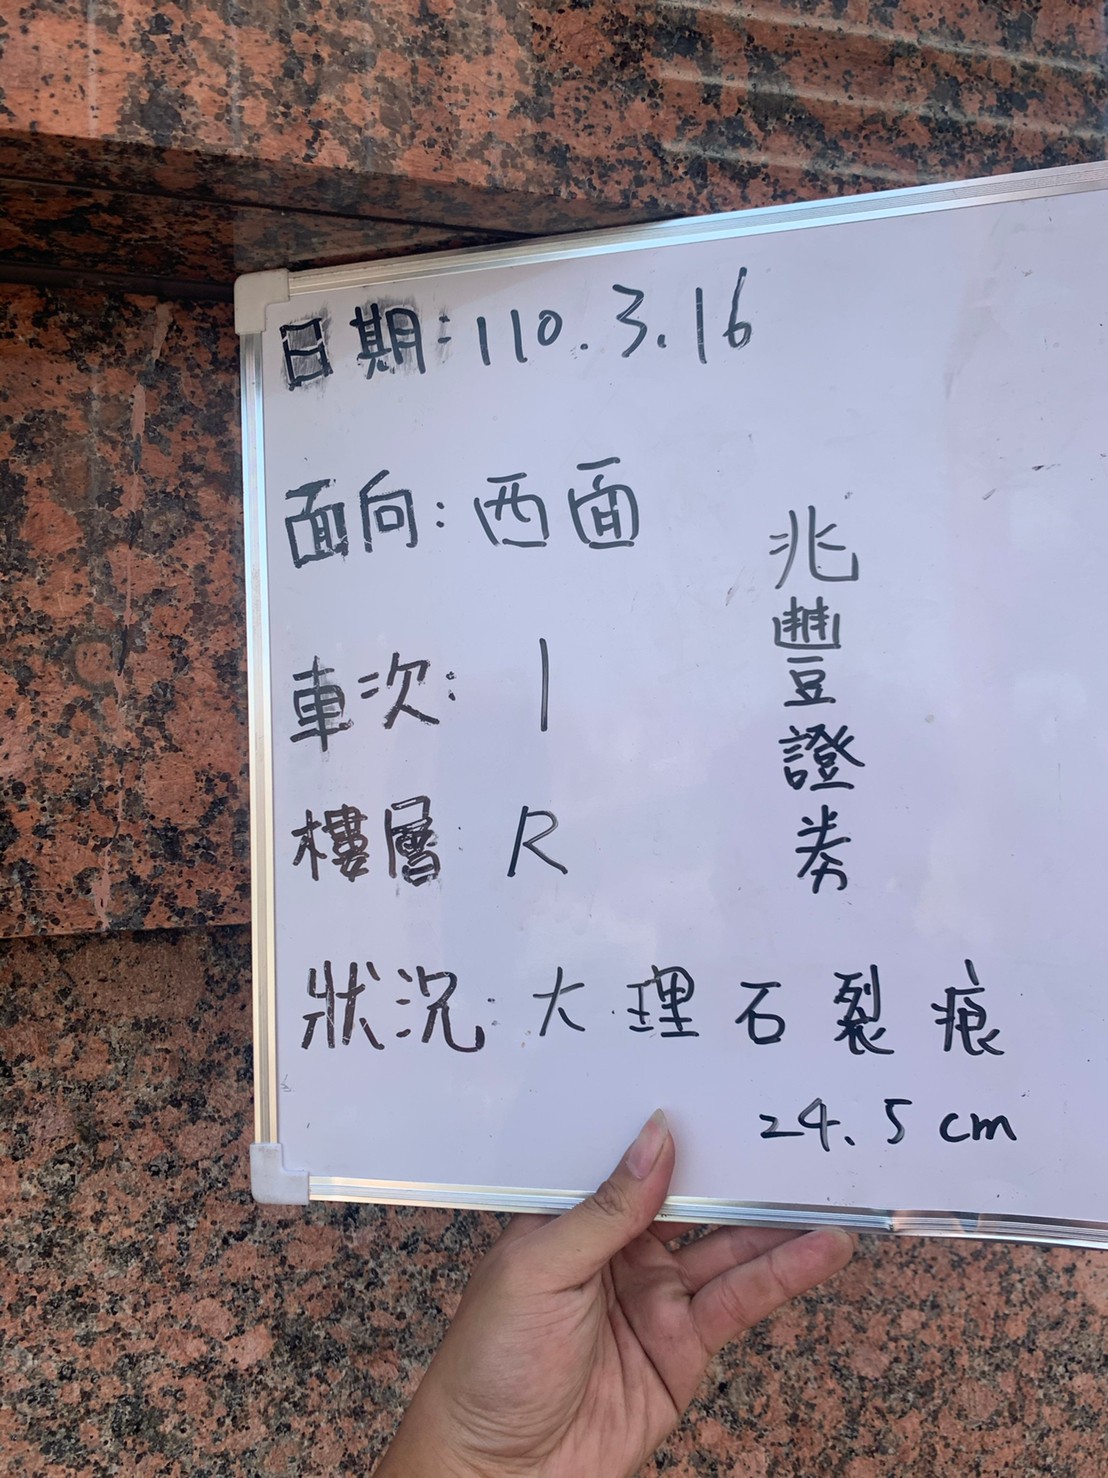 日期:110.3.16
面向:西面
車次:1
樓層 R
兆豐證券
狀況:大理石裂痕
24.5cm